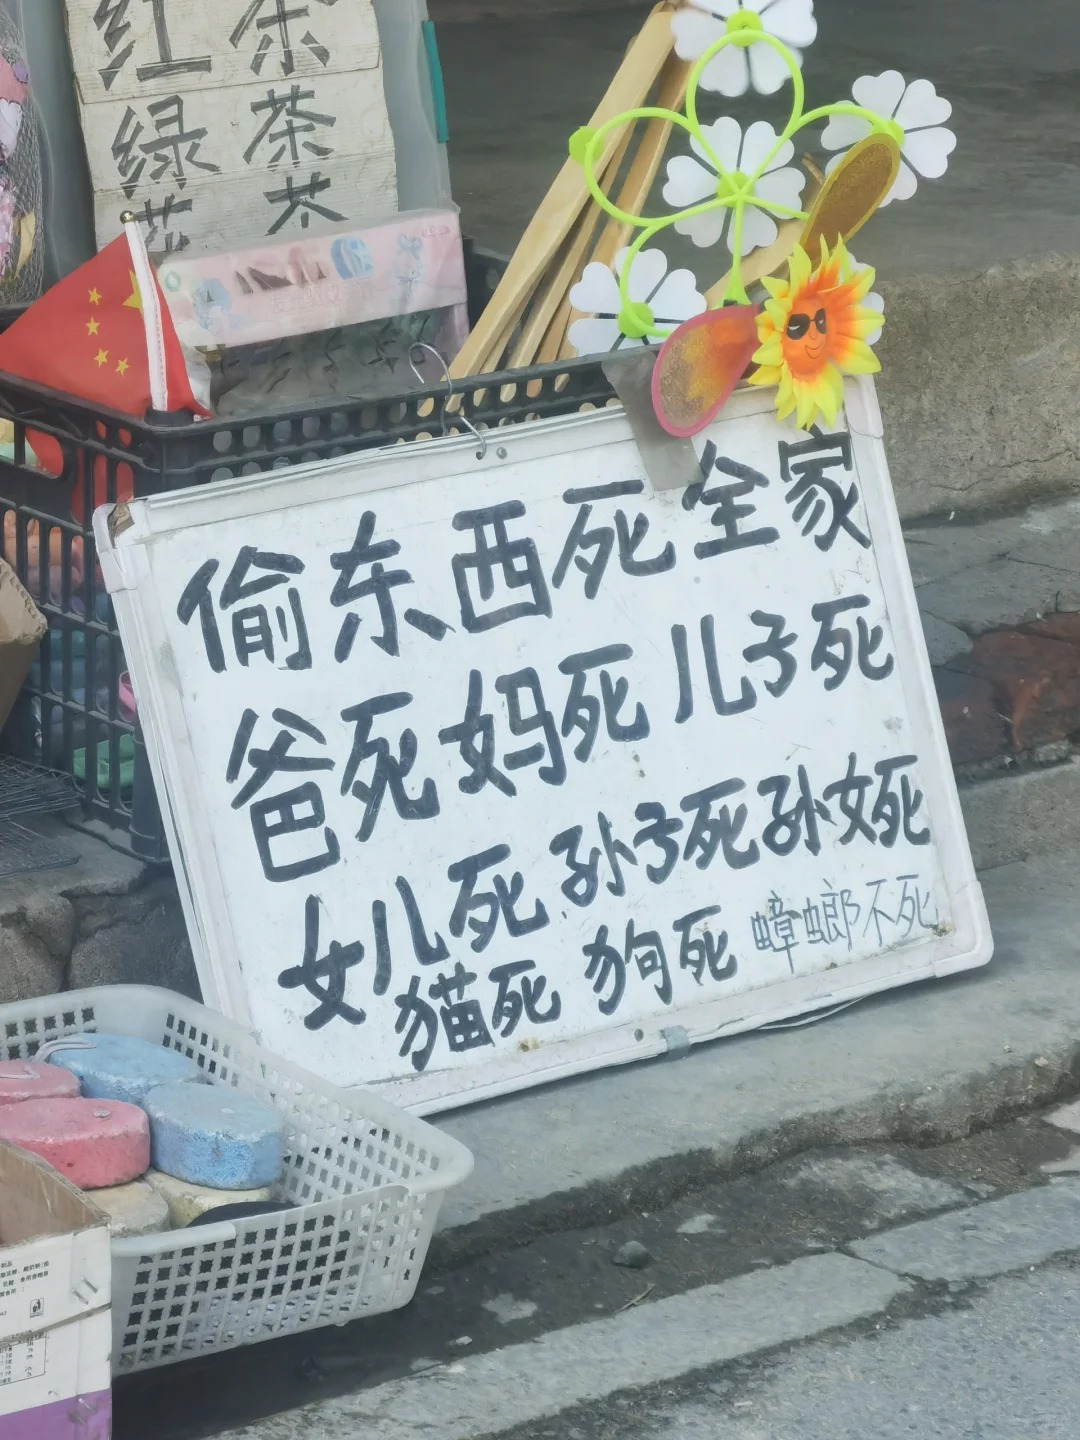 红茶
绿茶
花茶
偷东西死全家
爸死妈死儿子死
女儿死孙子死孙女死
猫死狗死蟑螂不死